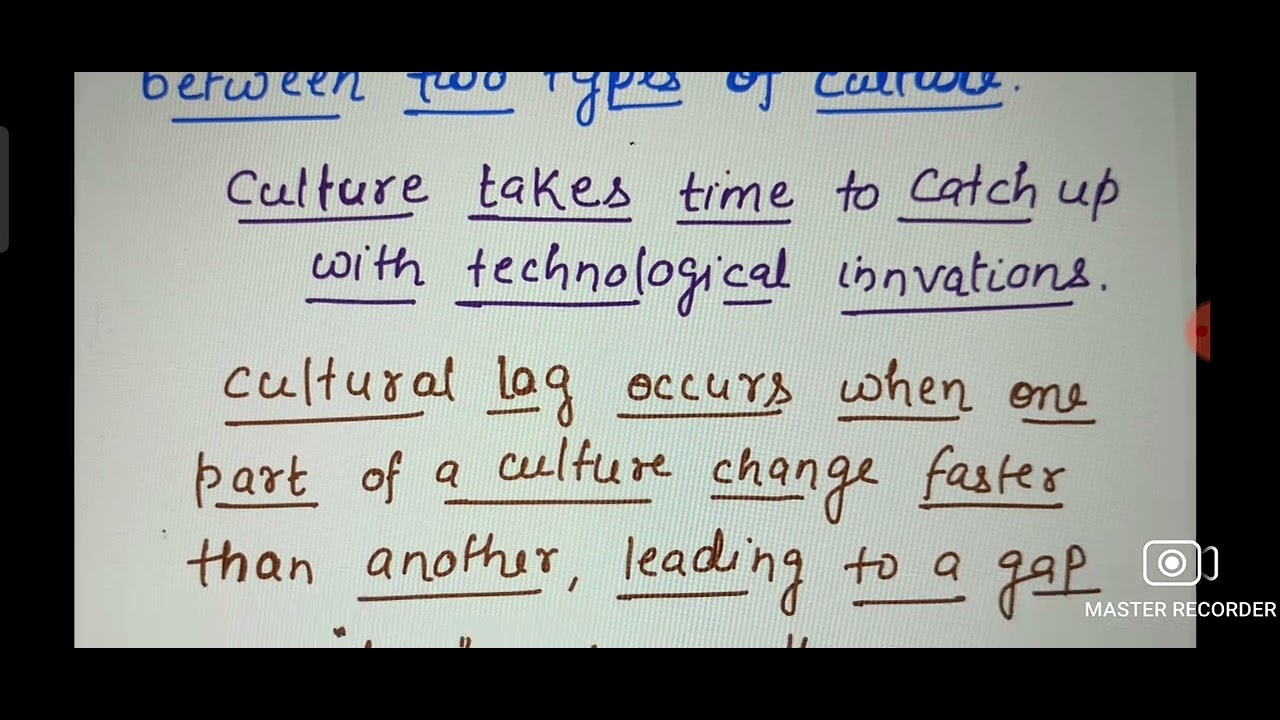 between two types of culture.
Culture takes time to catch up
with technological innvations.
cultural lag occurs when one
part of a culture change faster
than another, leading to a gap
MASTER RECORDER